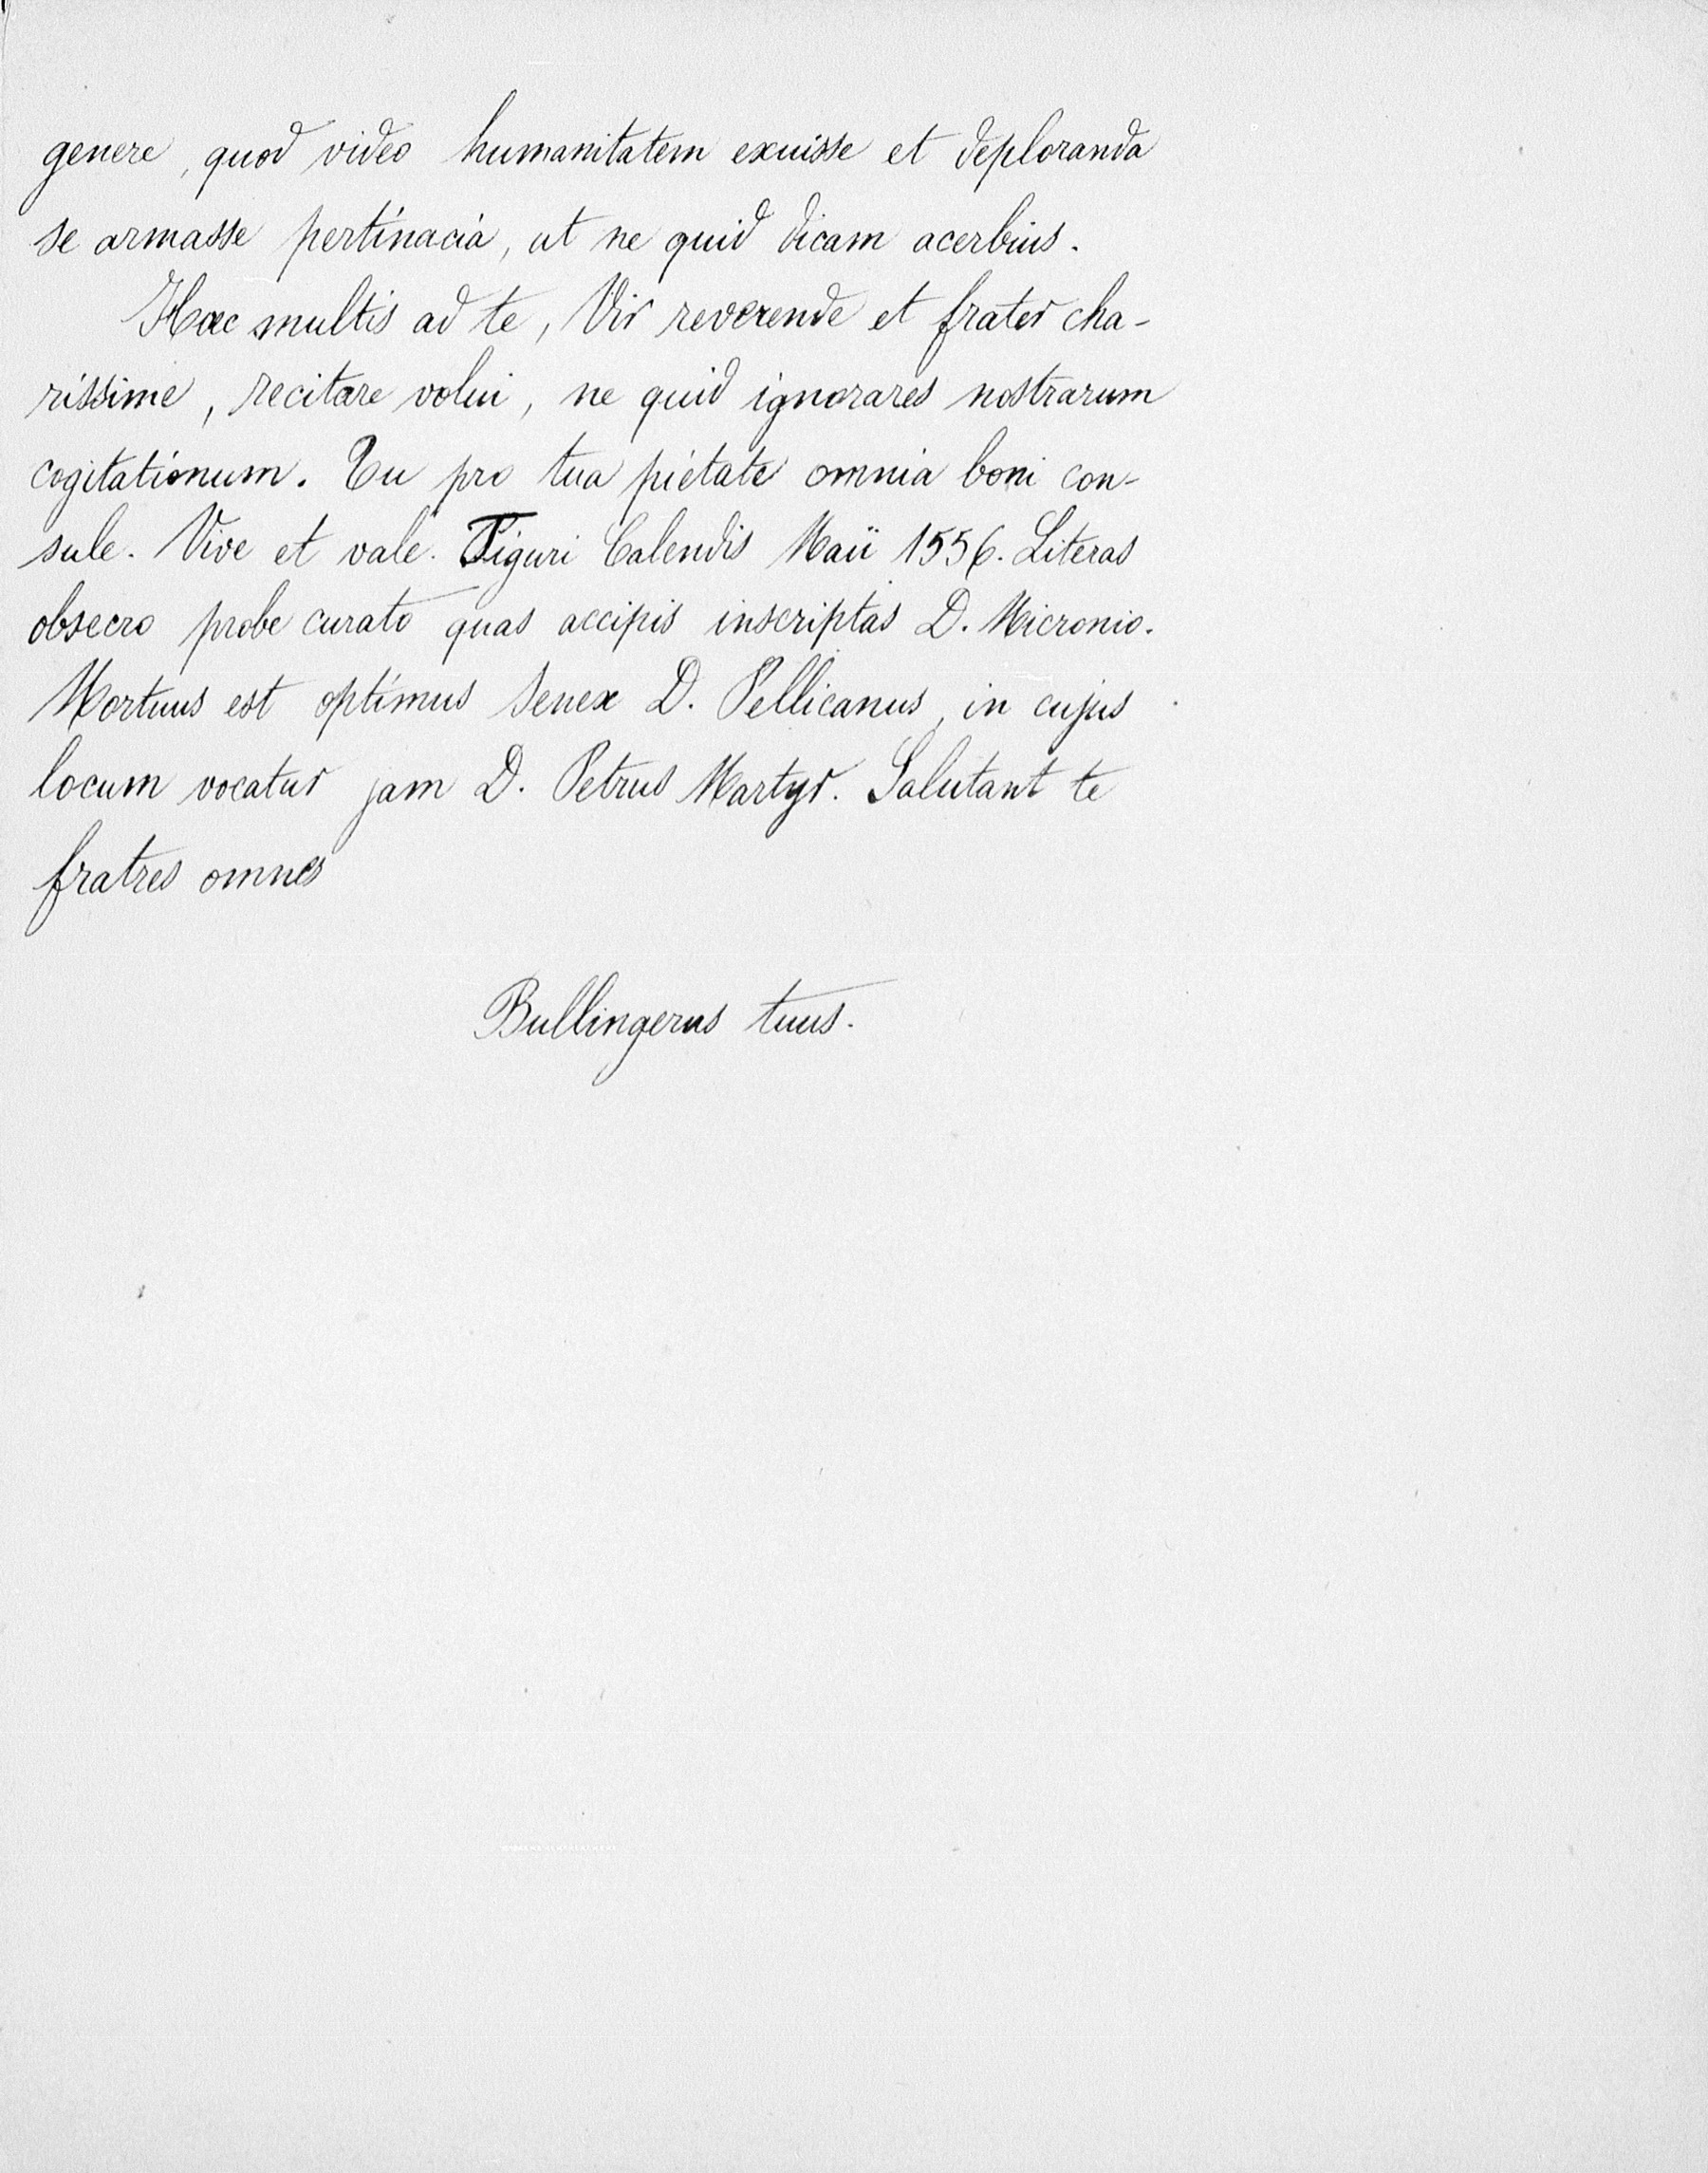 genere, quod video humanitatem exuisse et deploranda
se armasse pertinacia, ut ne quid dicam acerbius.
Haec multis ad te, Vir reverende et frater cha-
rissime, recitare volui, ne quid ignorares nostrarum
cogitationum. Tu pro tua pietate omnia boni con-
sule. Vive et vale. Tiguri Calendis Maii 1556. Literas
obsecro probe curato quas accipis inscriptas D. Micronio.
Mortuus est optimus senex D. Pellicanus, in cujus
locum vocatur jam D. Petrus Martyr. Salutant te
fratres omnes
Bullingerus tuus.